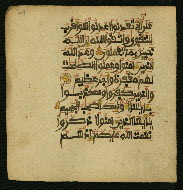 على الا تعدلوا اعدلوا هو اقرب
للتقوى واتقوا الله ان الله
خبير بما تعملون وعد الله
الذين امنوا وعملوا الصلحت
لهم مغفرة واجر عظيم
والذين كفروا وكذبوا
بايتنا اولئك اصحب الجحيم
يايها الذين امنوا اذكروا
نعمت الله عليكم اذ هم